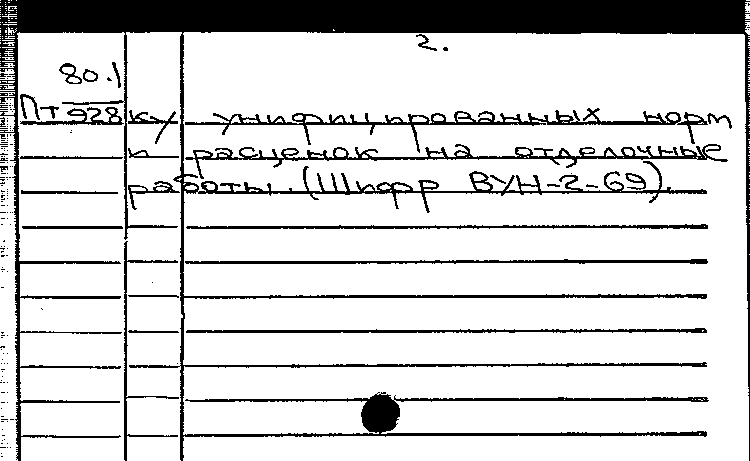 2.
80.1
Пт928 ку унифицированных норм
и расценок на отделочные
работы. (Шифр ВУН-2-69).